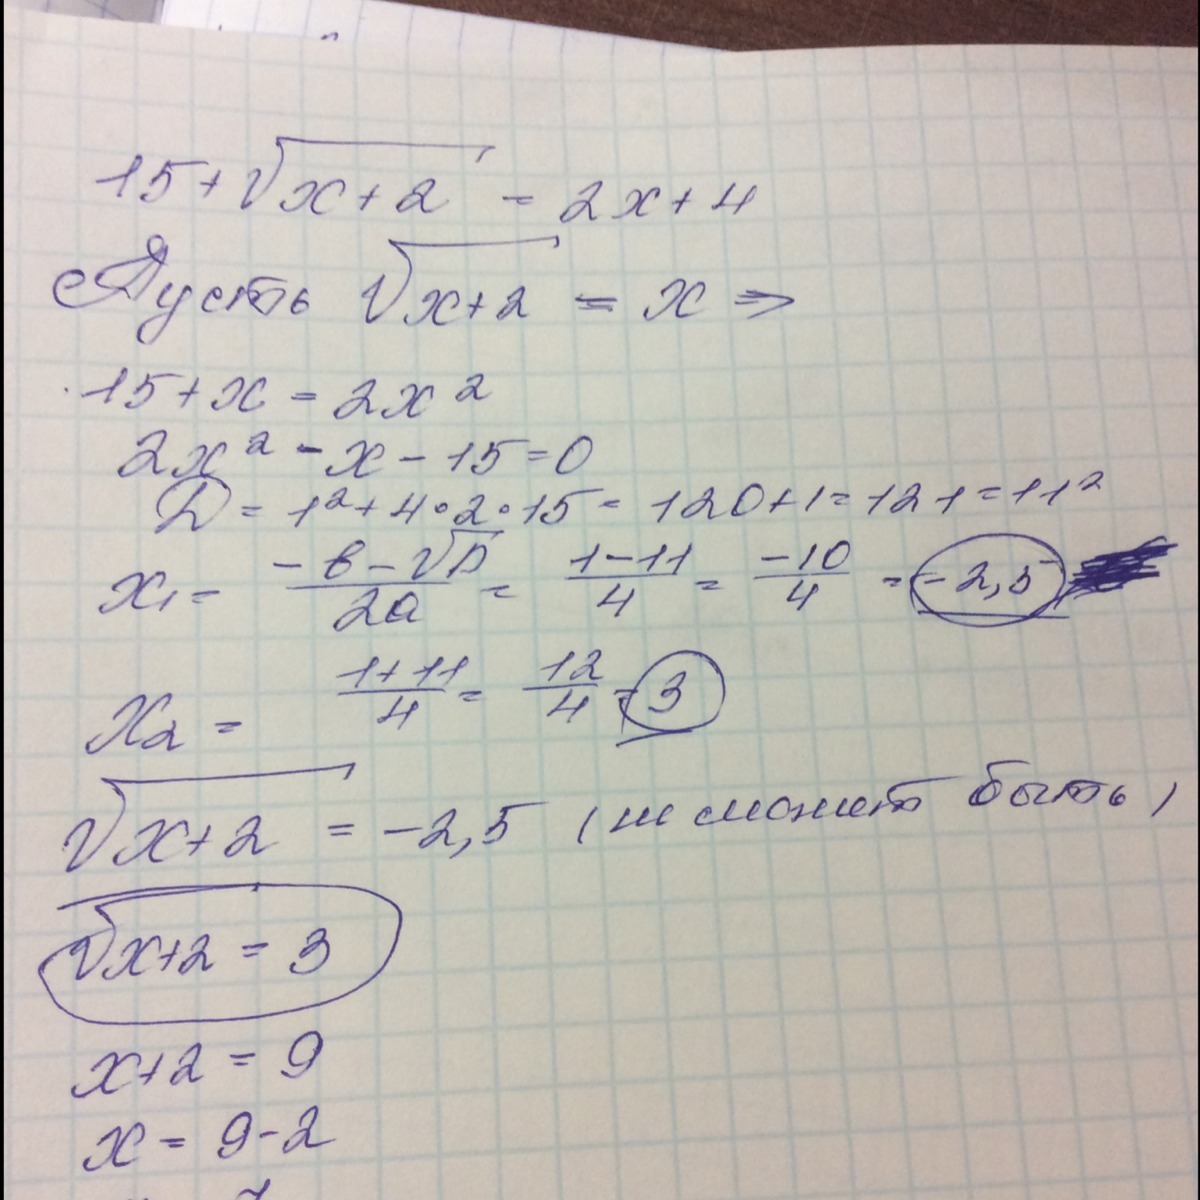 15 + √x + 2 = 2x + 4
Пусть √x + 2 = x ⇒
15 + x = 2x²
2x² - x - 15 = 0
D = 1² + 4 • 2 • 15 = 120 + 1 = 121 = 11²
x₁ = -в - √D / 2a = 1 - 11 / 4 = -10 / 4 = -2,5
x₂ = 1 + 11 / 4 = 12 / 4 = 3
√x + 2 = -2,5 (не может быть)
√x + 2 = 3
x + 2 = 9
x = 9 - 2